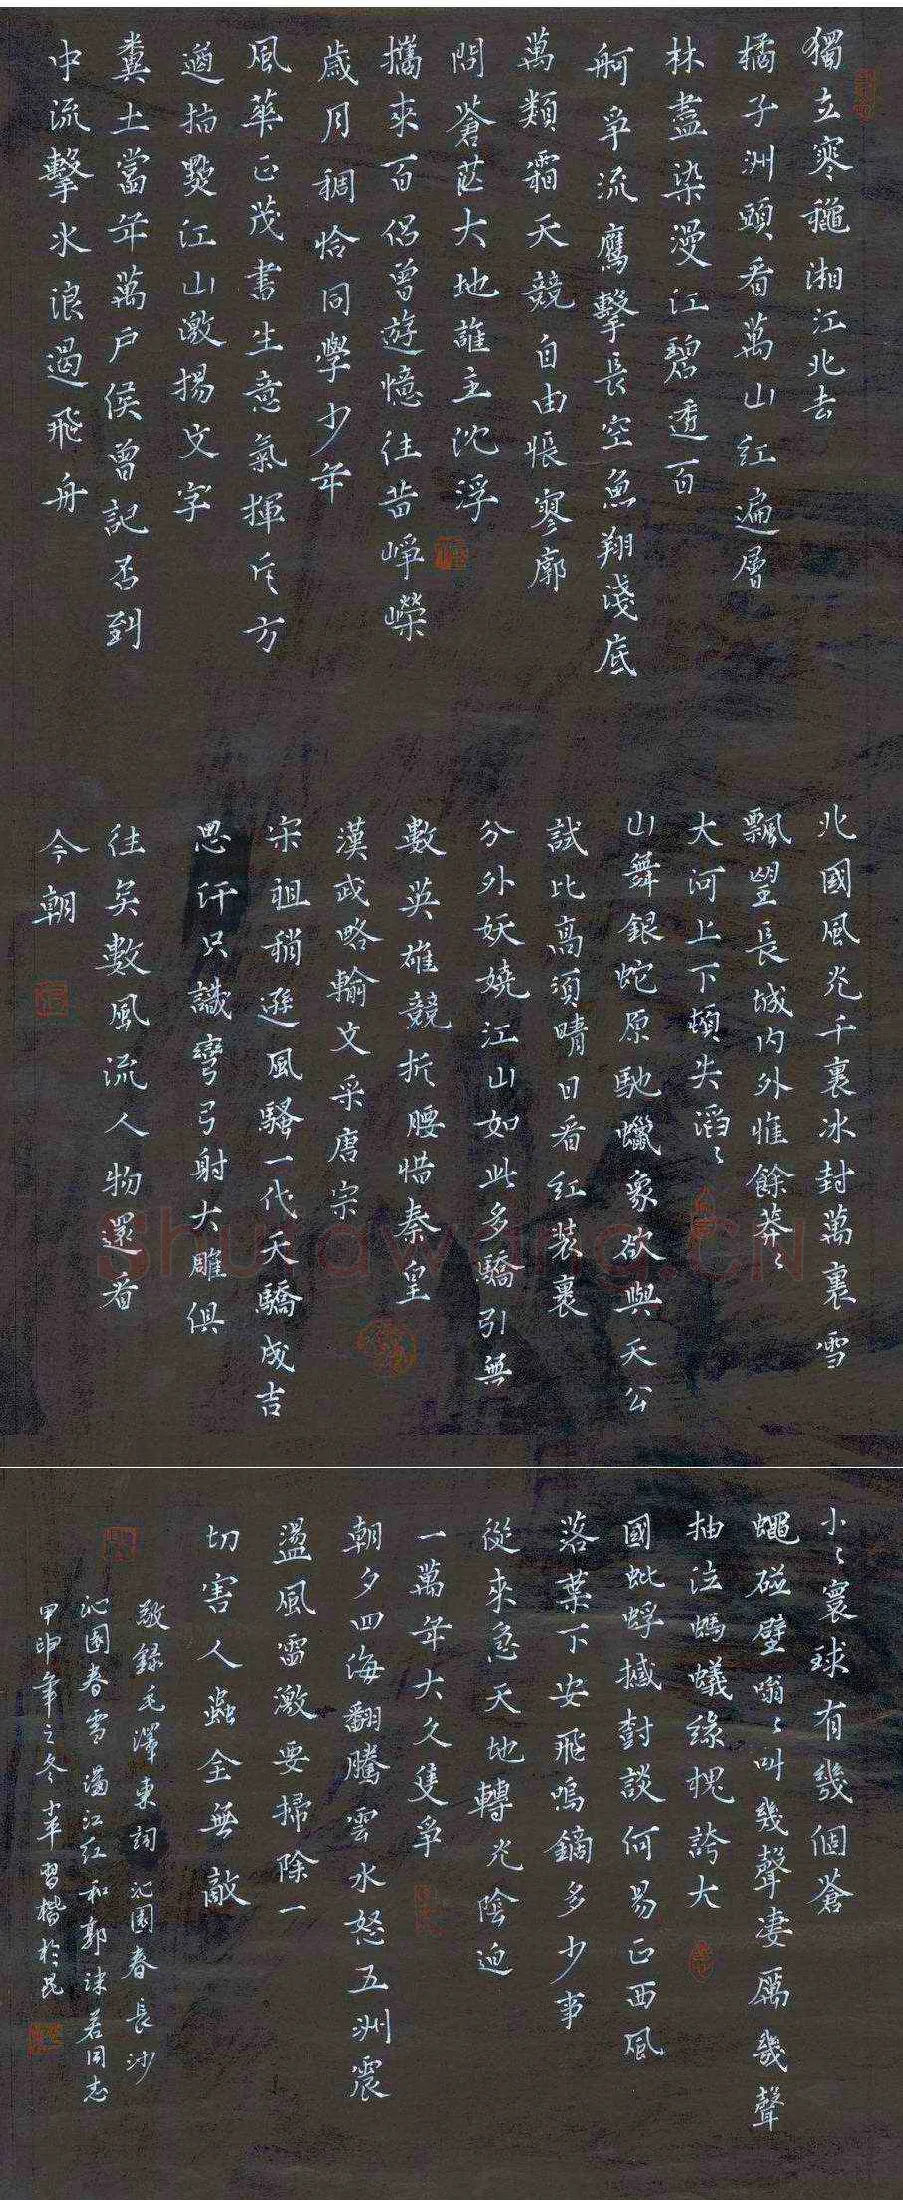 獨立寒穐湘江北去
橘子洲頭看萬山紅遍層
林盡染漫江碧透百
舸爭流鷹擊長空魚翔淺底
萬類霜天競自由悵寥廓
問蒼茫大地誰主沈浮
攜來百侶曾遊憶往昔崢嶸
歲月稠恰同學少年
風華正茂書生意氣揮斥方
遒指點江山激揚文字
糞土當年萬戶侯曾記否到
中流擊水浪遏飛舟
北國風光千裏冰封萬裏雪
飄望長城內外惟餘莽〻
大河上下頓失滔〻
山舞銀蛇原馳蠟象欲與天公
試比高須晴日看紅裝裹
分外妖嬈江山如此多驕引無
數英雄競折腰惜秦皇
漢武略輸文采唐宗
宋祖稍遜風騷一代天驕成吉
思汗只識彎弓射大雕俱
往矣數風流人物還看
今朝
Shufawang.CN
小〻寰球有幾個蒼
蠅碰壁嗡〻叫幾聲淒厲幾聲
抽泣螞蟻緣槐誇大
國蚍蜉撼樹談何易正西風
落葉下安飛鳴鏑多少事
從來急天地轉光陰迫
一萬年太久隻爭
朝夕四海翻騰雲水怒五洲震
盪風雷激要掃除一
切害人蟲全無敵
敬錄毛澤東詞沁園春長沙
沁園春雪滿江紅和郭沫若同志
甲申年之冬 習楷於昆